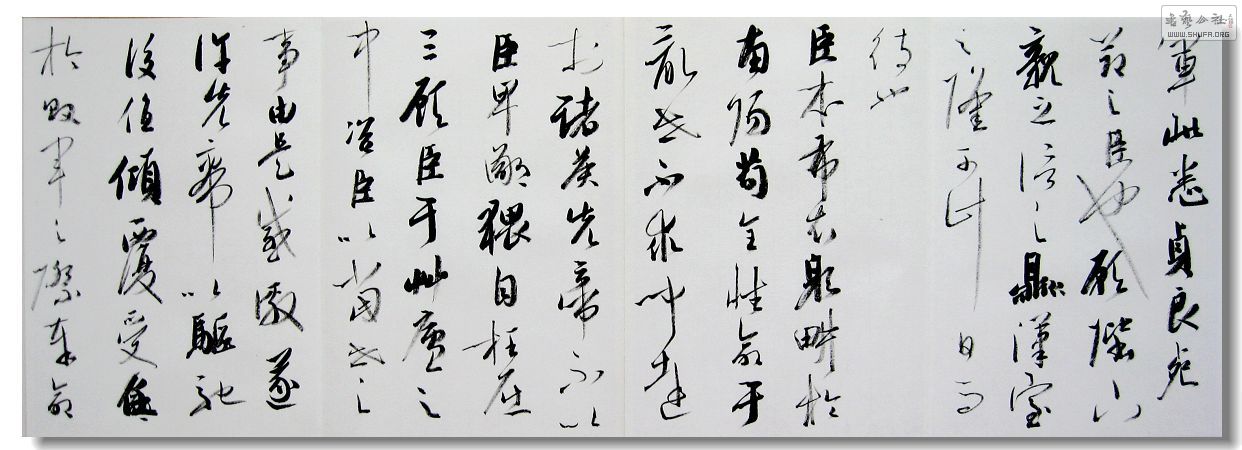 軍此悉貞良死
節之臣也願陛下
親之信之則漢室
之隆可計日而
待也
臣本布衣躬畊於
南陽苟全性命于
亂世不求聞達
於諸侯先帝不以
臣卑鄙猥自枉屈
三顧臣于艸廬之
中諮臣以當世之
事由是感激遂
許先帝以驅馳
後值傾覆受任
於敗軍之際奉命
書藝公社
WWW.SHUFA.ORG